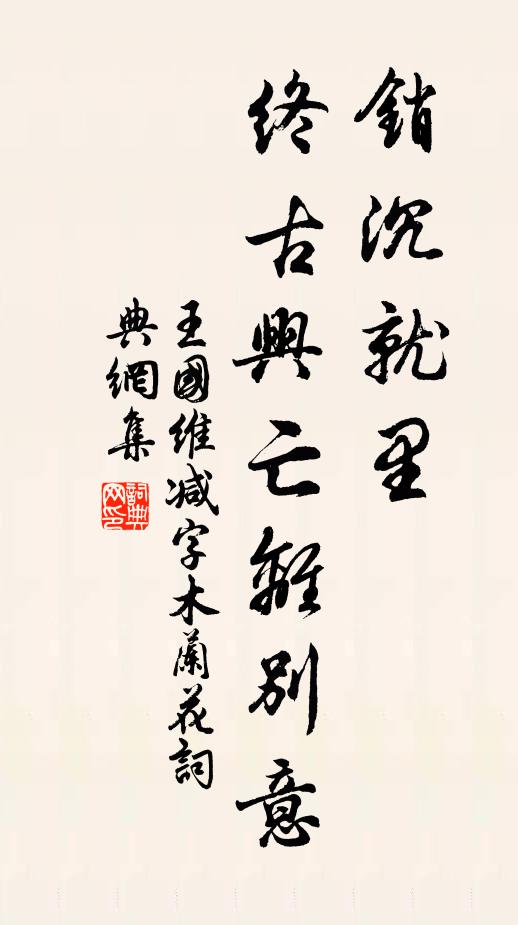 銷沉就里
終古興亡離別意
王國維減字木蘭花詞
典網集
詞典網印